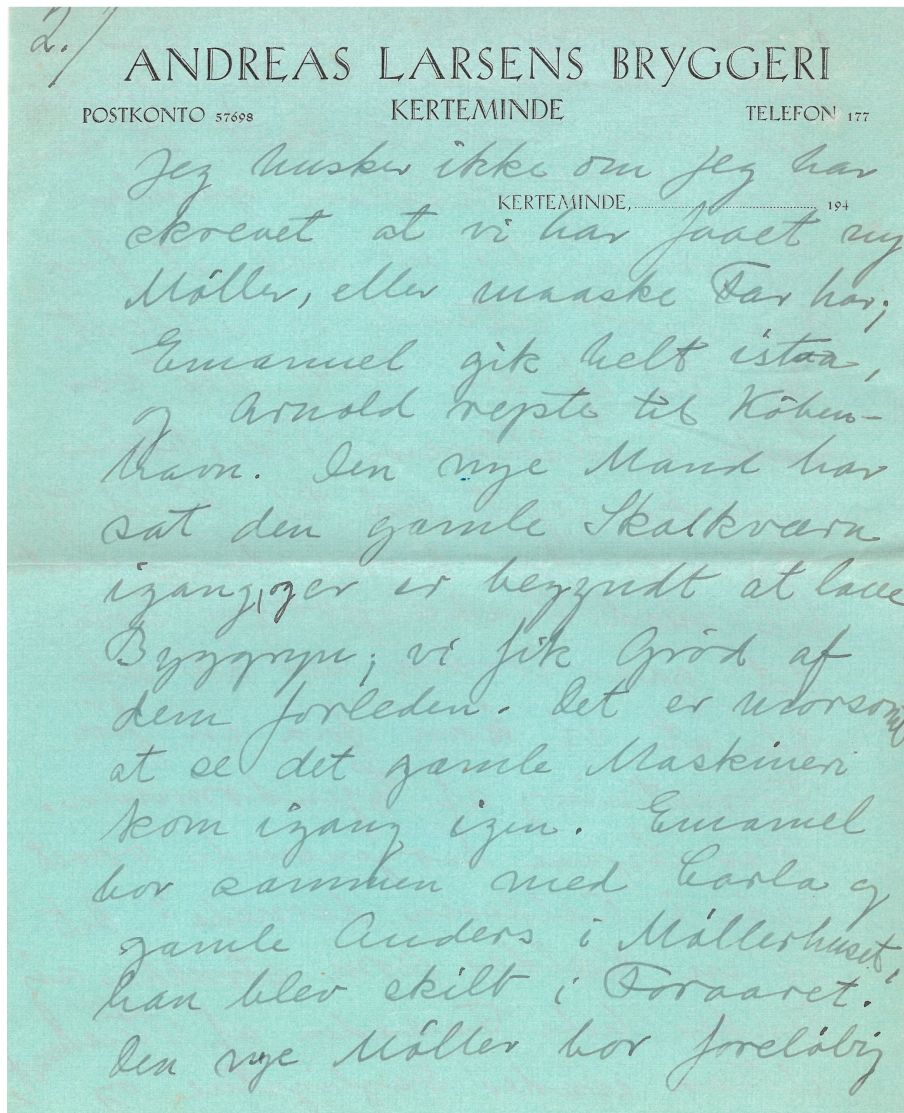 2./
ANDREAS LARSENS BRYGGERI
POSTKONTO 57698 KERTEMINDE TELEFON 177
Jeg husker ikke om jeg har
KERTEMINDE, 194
skrevet at vi har faaet ny
Møller, eller maaske Far har;
Emanuel gik helt istaa,
og Arnold rejste til Køben-
havn. Den nye Mand har
sat den gamle Skalkværn
igang, og er begyndt at lave
Byggryn; vi fik Grød af
dem forleden. Det er morsomt
at se det gamle Maskineri
kom igang igen. Emanuel
bor sammen med Carla og
gamle Anders i Møllerhuset,
han blev skilt i Foraaret.
Den nye Møller bor foreløbig